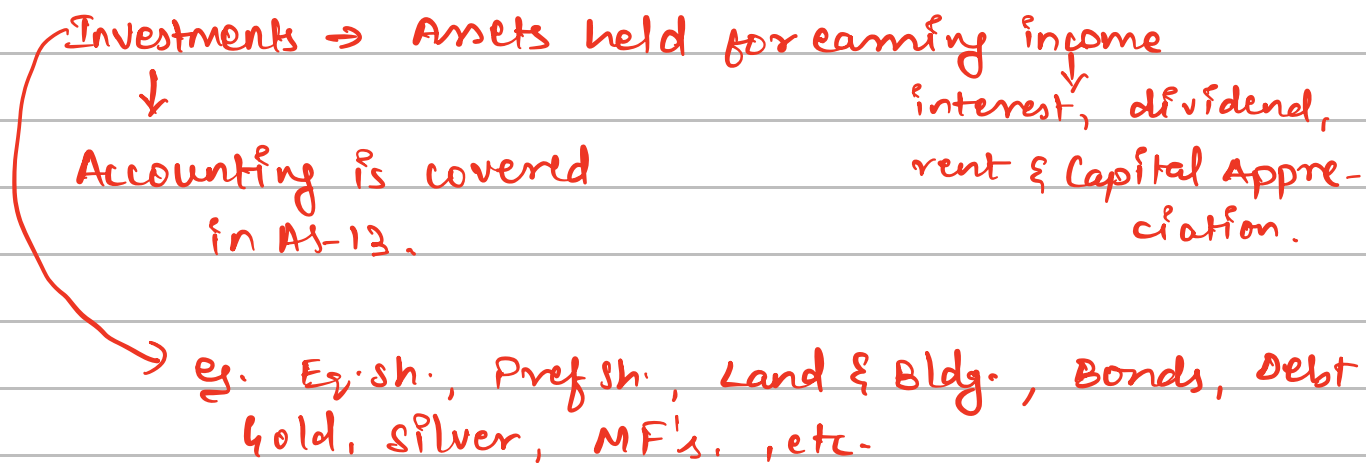 Investments → Assets held for earning income
interest, dividend,
rent & Capital Appre-
ciation.
Accounting is covered
in AS-13.
eg. Eq. sh., Pref sh., Land & Bldg., Bonds, Debt
Gold, Silver, MF's., etc.